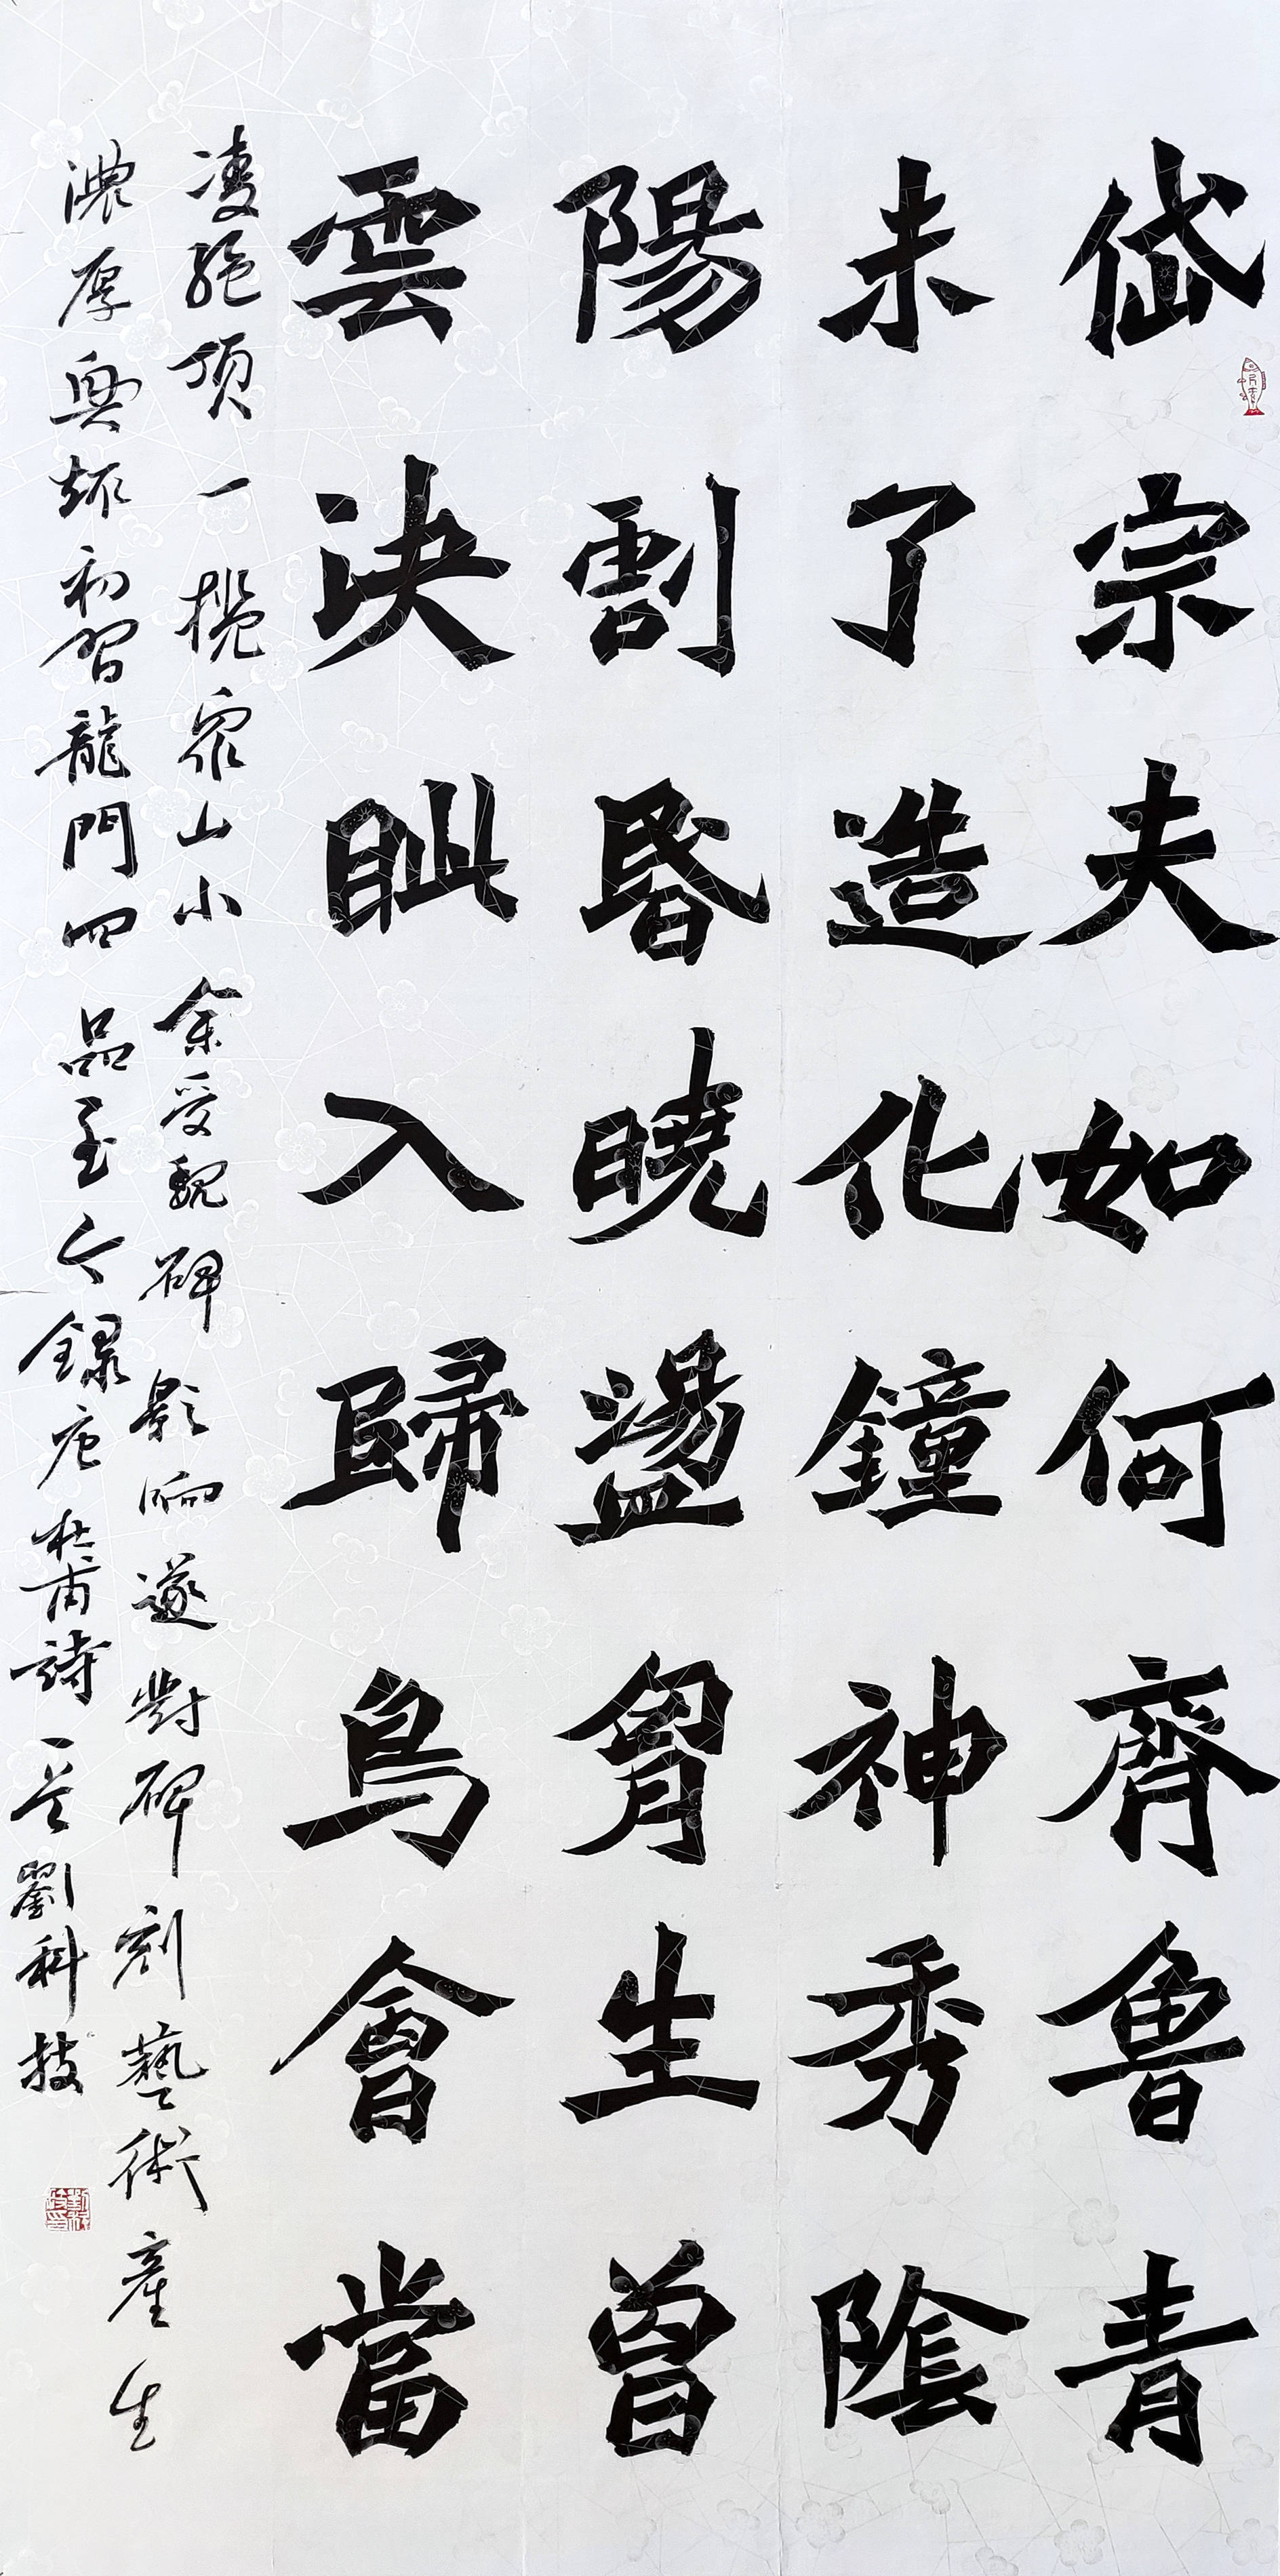 岱宗夫如何齊魯青
未了造化鐘神秀陰
陽割昏曉盪胷生曾
雲决眦入歸鳥會當
凌絕頂一攬眾山小 余受魏碑影响遂對碑刻藝術產生
濃厚興趣初習龍門四品至今錄唐杜甫詩一首劉科技